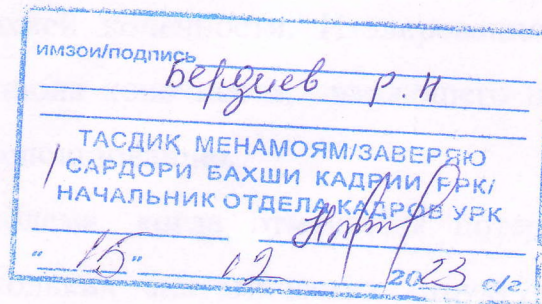 имзои/подпись
Бердиев Р.Н
ТАСДИҚ МЕНАМОЯМ/ЗАВЕРЯЮ
САРДОРИ БАХШИ КАДРИИ РРК/
НАЧАЛЬНИК ОТДЕЛА КАДРОВ УРК
"15" 12 2023 с/г